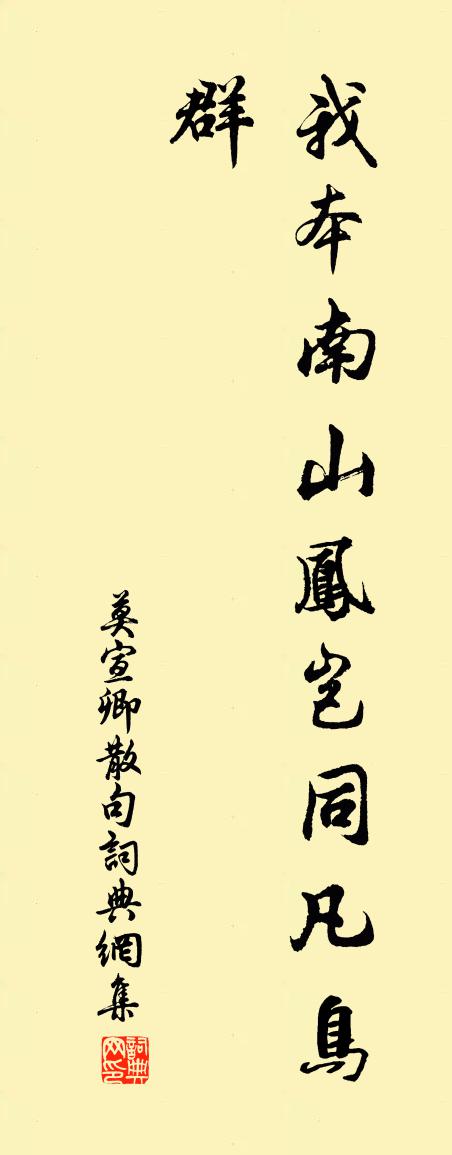 我本南山鳳豈同凡鳥
群
莫宣卿散句詞典網集
詞典
网印